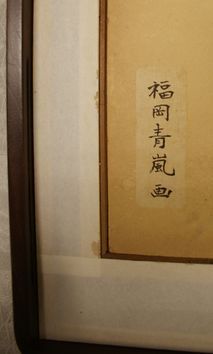 福岡青嵐画